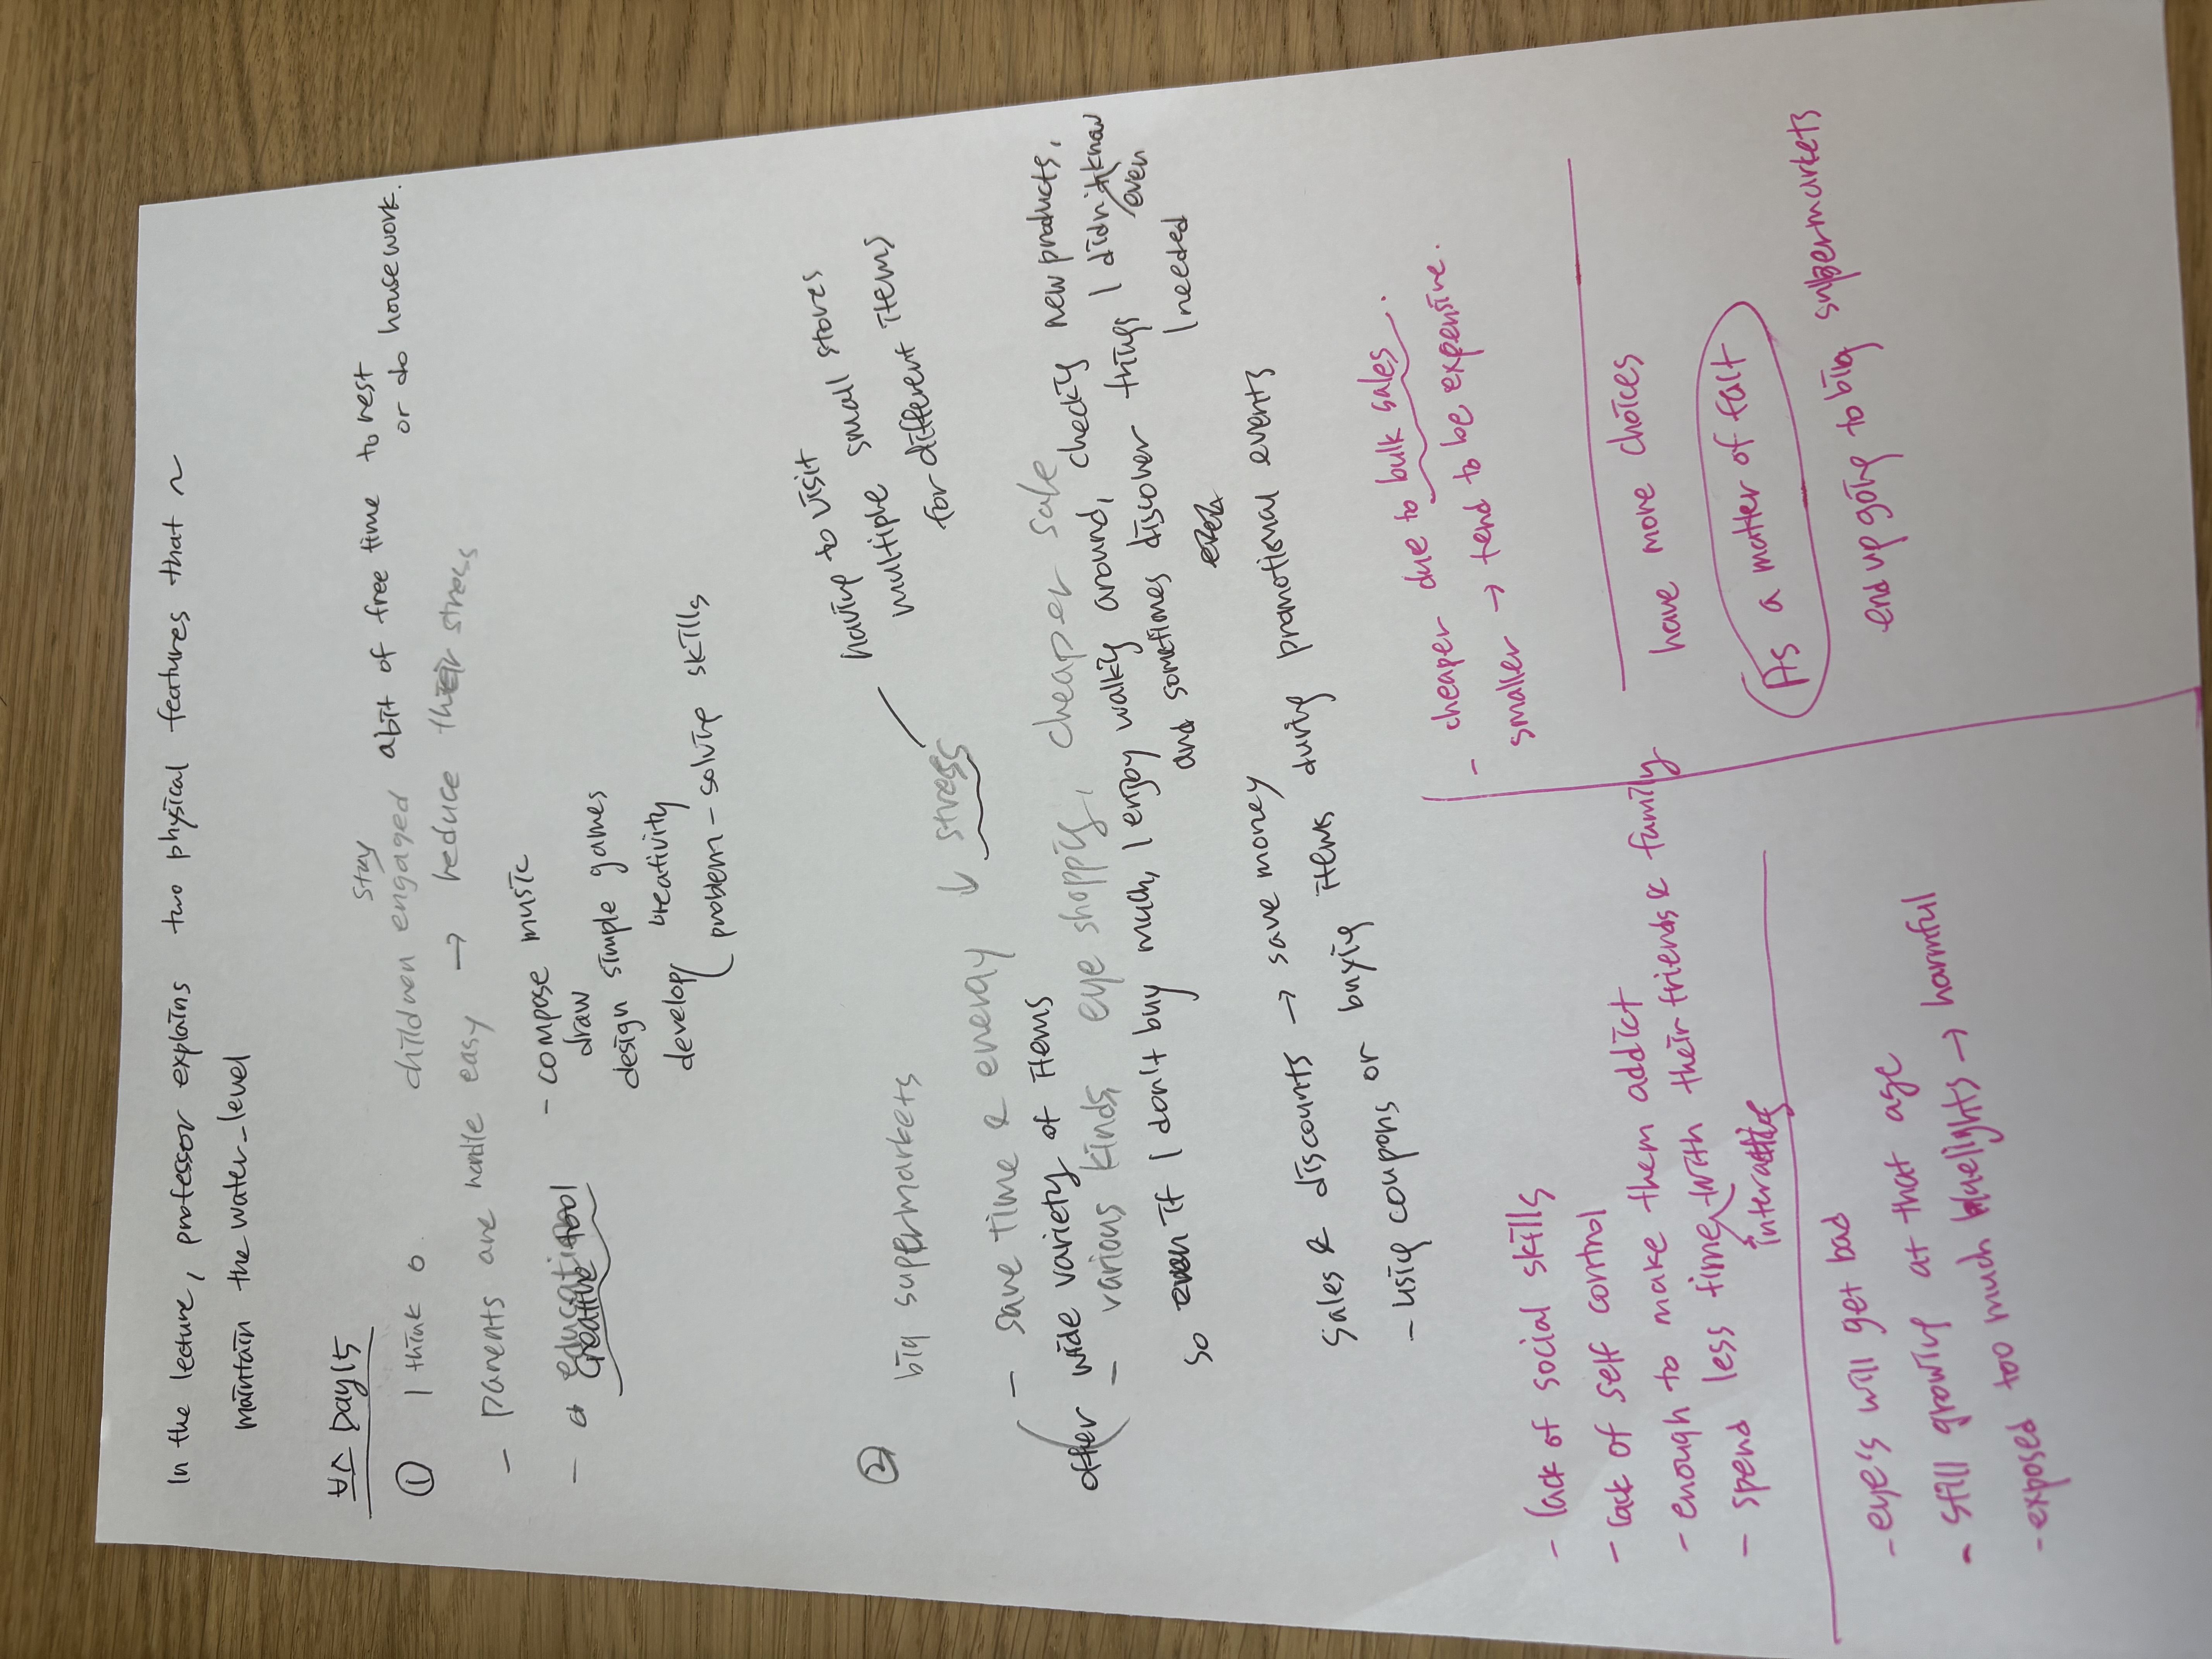 In the lecture, professor explains two physical features that ~
maintain the water_level
보스 Day15
① I think o
stay
children engaged
abit of free time to rest
or do housework.
- parents are handle easy → reduce their stress
- a creative tool
- compose music
draw
design simple games
develop creativity
problem-solving skills
② big suppermarkets
- save time & energy ↓ stress
having to visit
multiple small stores
for different items
offer wide variety of items
- various kinds, eye shoppig, cheaper sale
so even if I don't buy much, I enjoy walkig around, checkig new products,
and sometimes discover things I didn't know
even
I needed
sales & discounts → save money
- usig coupons or buyig items durig promotional events
- cheaper due to bulk sales.
smaller → tend to be expensive.
- lack of social skills
- lack of self control
- enough to make them addict
- spend less time with their friends & family
interactig
- eye's will get bad
- still growig at that age
- exposed too much bluelights → harmful
have more choices
As a matter of falt
end up goig to big supermarkets